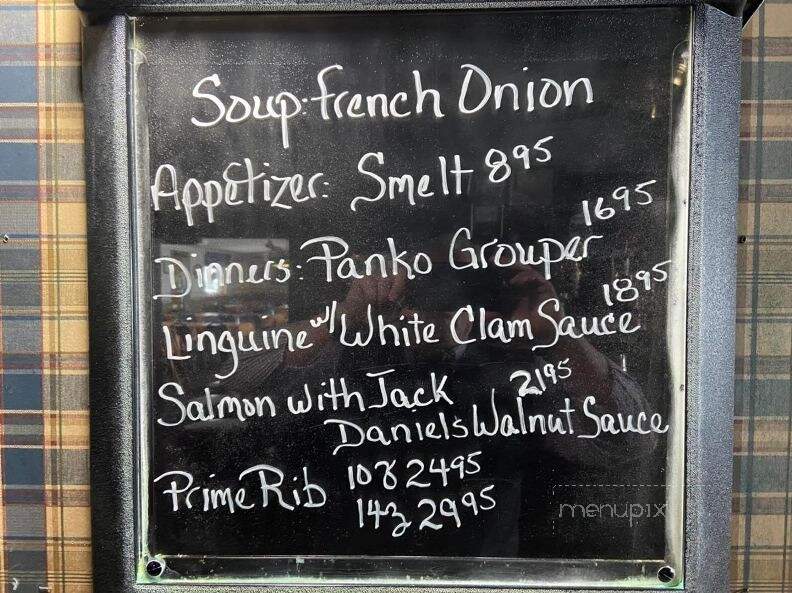 Soup: French Onion
Appetizer: Smelt 895
Dinners: Panko Grouper 1695
Linguine w/ White Clam Sauce 1895
Salmon with Jack 2195
Daniels Walnut Sauce
Prime Rib 10z 2495
14z 2995
menupix